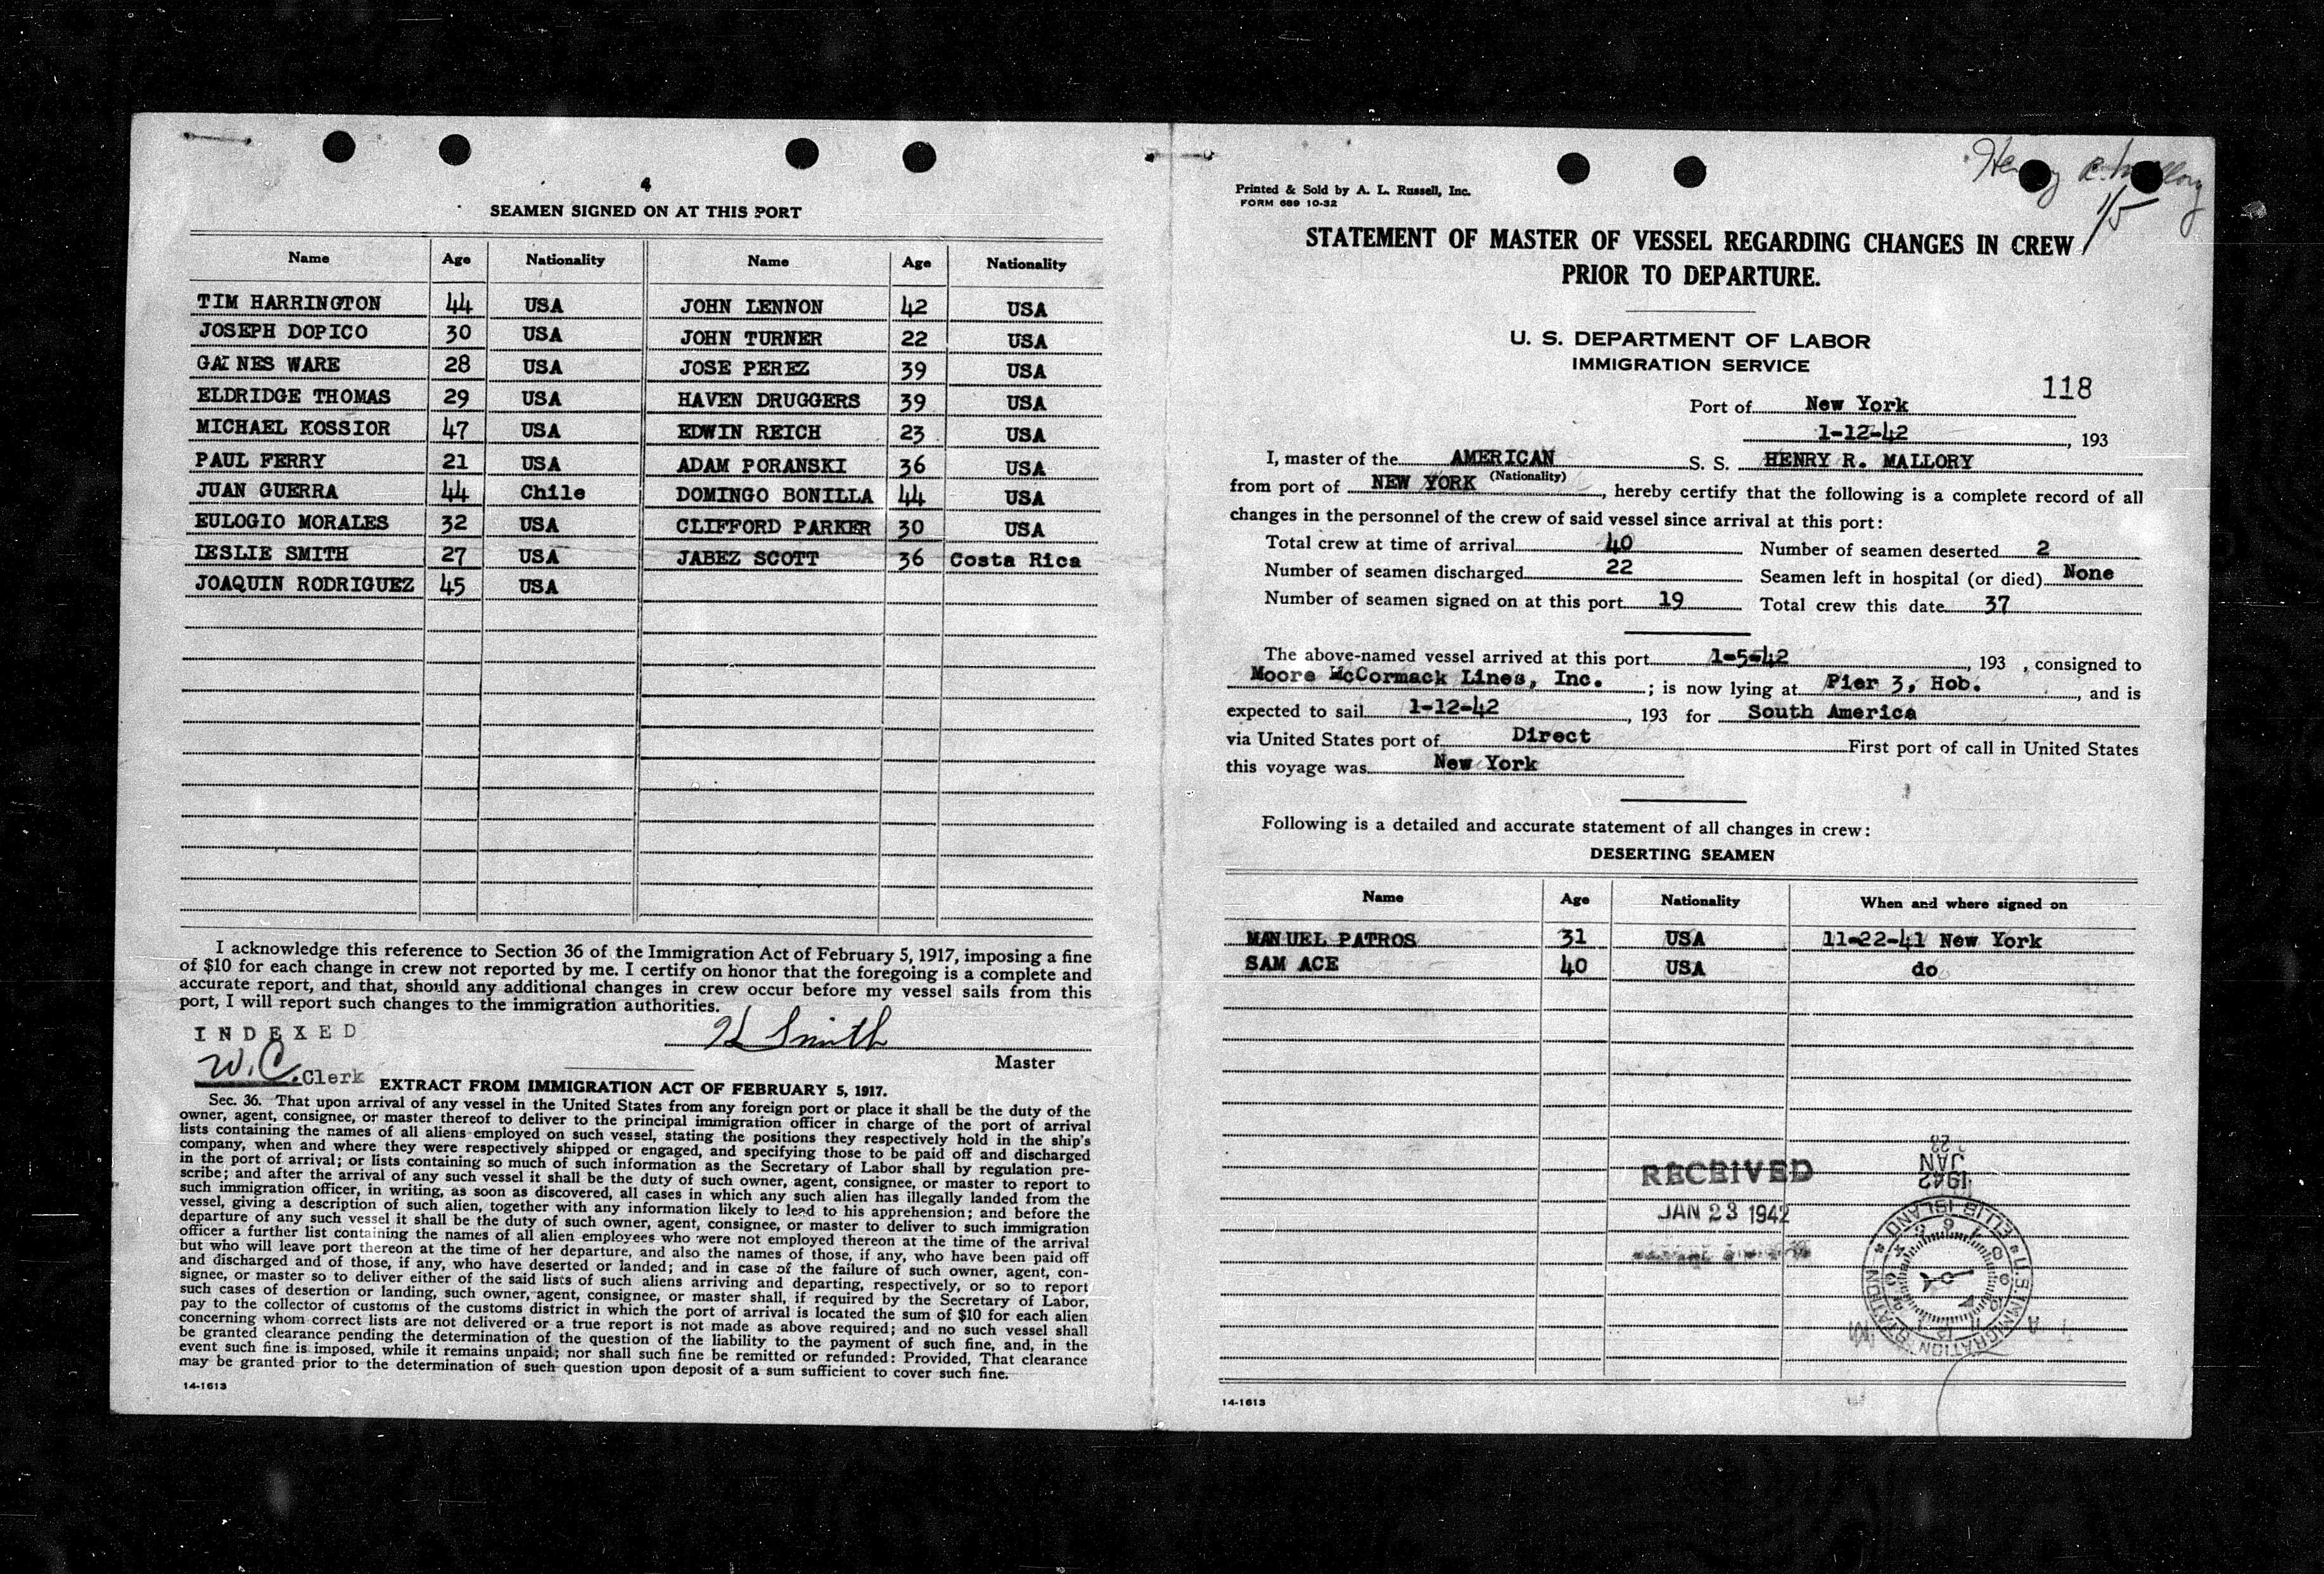 4
SEAMEN SIGNED ON AT THIS PORT
Name Age Nationality Name Age Nationality
TIM HARRINGTON 44 USA JOHN LENNON 42 USA
JOSEPH DOPICO 30 USA JOHN TURNER 22 USA
GAINES WARE 28 USA JOSE PEREZ 39 USA
ELDRIDGE THOMAS 29 USA HAVEN DRUGGERS 39 USA
MICHAEL KOSSIOR 47 USA EDWIN REICH 23 USA
PAUL FERRY 21 USA ADAM PORANSKI 36 USA
JUAN GUERRA 44 Chile DOMINGO BONILLA 44 USA
EULOGIO MORALES 32 USA CLIFFORD PARKER 30 USA
LESLIE SMITH 27 USA JABEZ SCOTT 36 Costa Rica
JOAQUIN RODRIGUEZ 45 USA
I acknowledge this reference to Section 36 of the Immigration Act of February 5, 1917, imposing a fine
of $10 for each change in crew not reported by me. I certify on honor that the foregoing is a complete and
accurate report, and that, should any additional changes in crew occur before my vessel sails from this
port, I will report such changes to the immigration authorities.
INDEXED
H Smith
Master
W.C. Clerk
EXTRACT FROM IMMIGRATION ACT OF FEBRUARY 5, 1917.
Sec. 36. That upon arrival of any vessel in the United States from any foreign port or place it shall be the duty of the
owner, agent, consignee, or master thereof to deliver to the principal immigration officer in charge of the port of arrival
lists containing the names of all aliens employed on such vessel, stating the positions they respectively hold in the ship's
company, when and where they were respectively shipped or engaged, and specifying those to be paid off and discharged
in the port of arrival; or lists containing so much of such information as the Secretary of Labor shall by regulation pre-
scribe; and after the arrival of any such vessel it shall be the duty of such owner, agent, consignee, or master to report to
such immigration officer, in writing, as soon as discovered, all cases in which any such alien has illegally landed from the
vessel, giving a description of such alien, together with any information likely to lead to his apprehension; and before the
departure of any such vessel it shall be the duty of such owner, agent, consignee, or master to deliver to such immigration
officer a further list containing the names of all alien employees who were not employed thereon at the time of the arrival
but who will leave port thereon at the time of her departure, and also the names of those, if any, who have been paid off
and discharged and of those, if any, who have deserted or landed; and in case of the failure of such owner, agent, con-
signee, or master so to deliver either of the said lists of such aliens arriving and departing, respectively, or so to report
such cases of desertion or landing, such owner, agent, consignee, or master shall, if required by the Secretary of Labor,
pay to the collector of customs of the customs district in which the port of arrival is located the sum of $10 for each alien
concerning whom correct lists are not delivered or a true report is not made as above required; and no such vessel shall
be granted clearance pending the determination of the question of the liability to the payment of such fine, and, in the
event such fine is imposed, while it remains unpaid; nor shall such fine be remitted or refunded: Provided, That clearance
may be granted prior to the determination of such question upon deposit of a sum sufficient to cover such fine.
14-1613
Henry R. Mallory
1/5
Printed & Sold by A. L. Russell, Inc.
FORM 689 10-32
STATEMENT OF MASTER OF VESSEL REGARDING CHANGES IN CREW
PRIOR TO DEPARTURE.
U. S. DEPARTMENT OF LABOR
IMMIGRATION SERVICE
118
Port of New York
1-12-42, 193
I, master of the AMERICAN S. S. HENRY R. MALLORY
(Nationality)
from port of NEW YORK, hereby certify that the following is a complete record of all
changes in the personnel of the crew of said vessel since arrival at this port:
Total crew at time of arrival 40 Number of seamen deserted 2
Number of seamen discharged 22 Seamen left in hospital (or died) None
Number of seamen signed on at this port 19 Total crew this date 37
The above-named vessel arrived at this port 1-5-42, 193 , consigned to
Moore McCormack Lines, Inc. ; is now lying at Pier 3, Hob. , and is
expected to sail 1-12-42, 193 for South America
via United States port of Direct First port of call in United States
this voyage was New York
Following is a detailed and accurate statement of all changes in crew:
DESERTING SEAMEN
Name Age Nationality When and where signed on
MANUEL PATROS 31 USA 11-22-41 New York
SAM ACE 40 USA do
RECEIVED
JAN 23 1942
1942
JAN
23
U.S. IMMIGRATION STATION
ELLIS ISLAND
14-1613